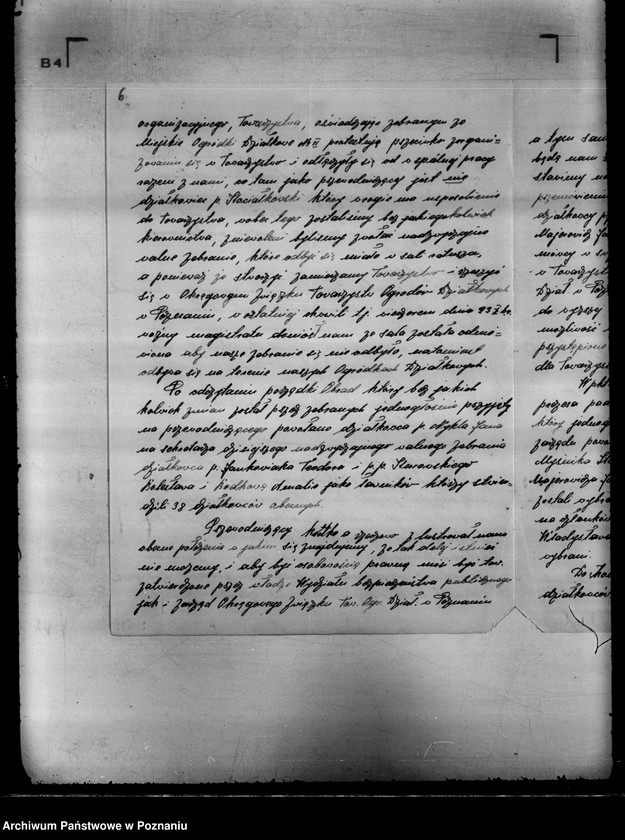 B4
6.
organizacyjnego, Towarzystwa, oświadczając zebranym że
Miejskie Ogródki Działkowe Nr II protestują przeciwko zorgani-
zowaniu się w Towarzystwo i odłączyły się od wspólnej pracy
razem z nami, co tam jako przewodniczący jest nie
działkowiec p. który wrogie ma usposobienie
do towarzystwa, wobec tego zostaliśmy bez jakiegokolwiek
kierownictwa, zniewoleni byliśmy zwołać nadzwyczajne
walne zebranie, które odbyć się miało w sali ratusza,
a ponieważ że stworzyć zamierzamy Towarzystwo i zrzeszyć
się w Okręgowym Związku Towarzystw Ogrodów Działkowych
w Poznaniu, w ostatniej chwili tj. wieczorem dnia
woźny magistratu doniósł nam że sala została odmó-
wiona aby nasze zebranie się nie odbyło, natomiast
odbywa się na terenie naszych Ogródkach Działkowych.
Po odczytaniu porządki Obrad który bez jakich
kolwiek zmian został przez zebranych jednogłośnie przyjęty
na przewodniczącego powołano działkowca p. Jana
na sekretarza dzisiejszego nadzwyczajnego walnego zebrania
działkowca p. Jankowiaka Teodora i p.p. Sterowskiego
Bolesława i jako ławników którzy stwier-
dzili 38 działkowców obecnych.
Przewodniczący zilustrował nam
obecne położenie w jakim się znajdujemy, że tak dalej istnieć
nie możemy, i aby być osobowością prawną musi być tow.
zatwierdzone przez władze Wydziału bezpieczeństwa publicznego
jak i zarząd Okręgowego Związku Tow. Ogr. Dział. w Poznaniu
a tym sam
będą nam
stawimy na
działkowcy p
w Towarzystw
Dział. w Po
do wyższej
możliwość
przystąpiono
dla Towarzys
W pkt
który jednog
zarządu pow
został wybra
na członków
Władysława
wybrani.
działkowców
Archiwum Państwowe w Poznaniu